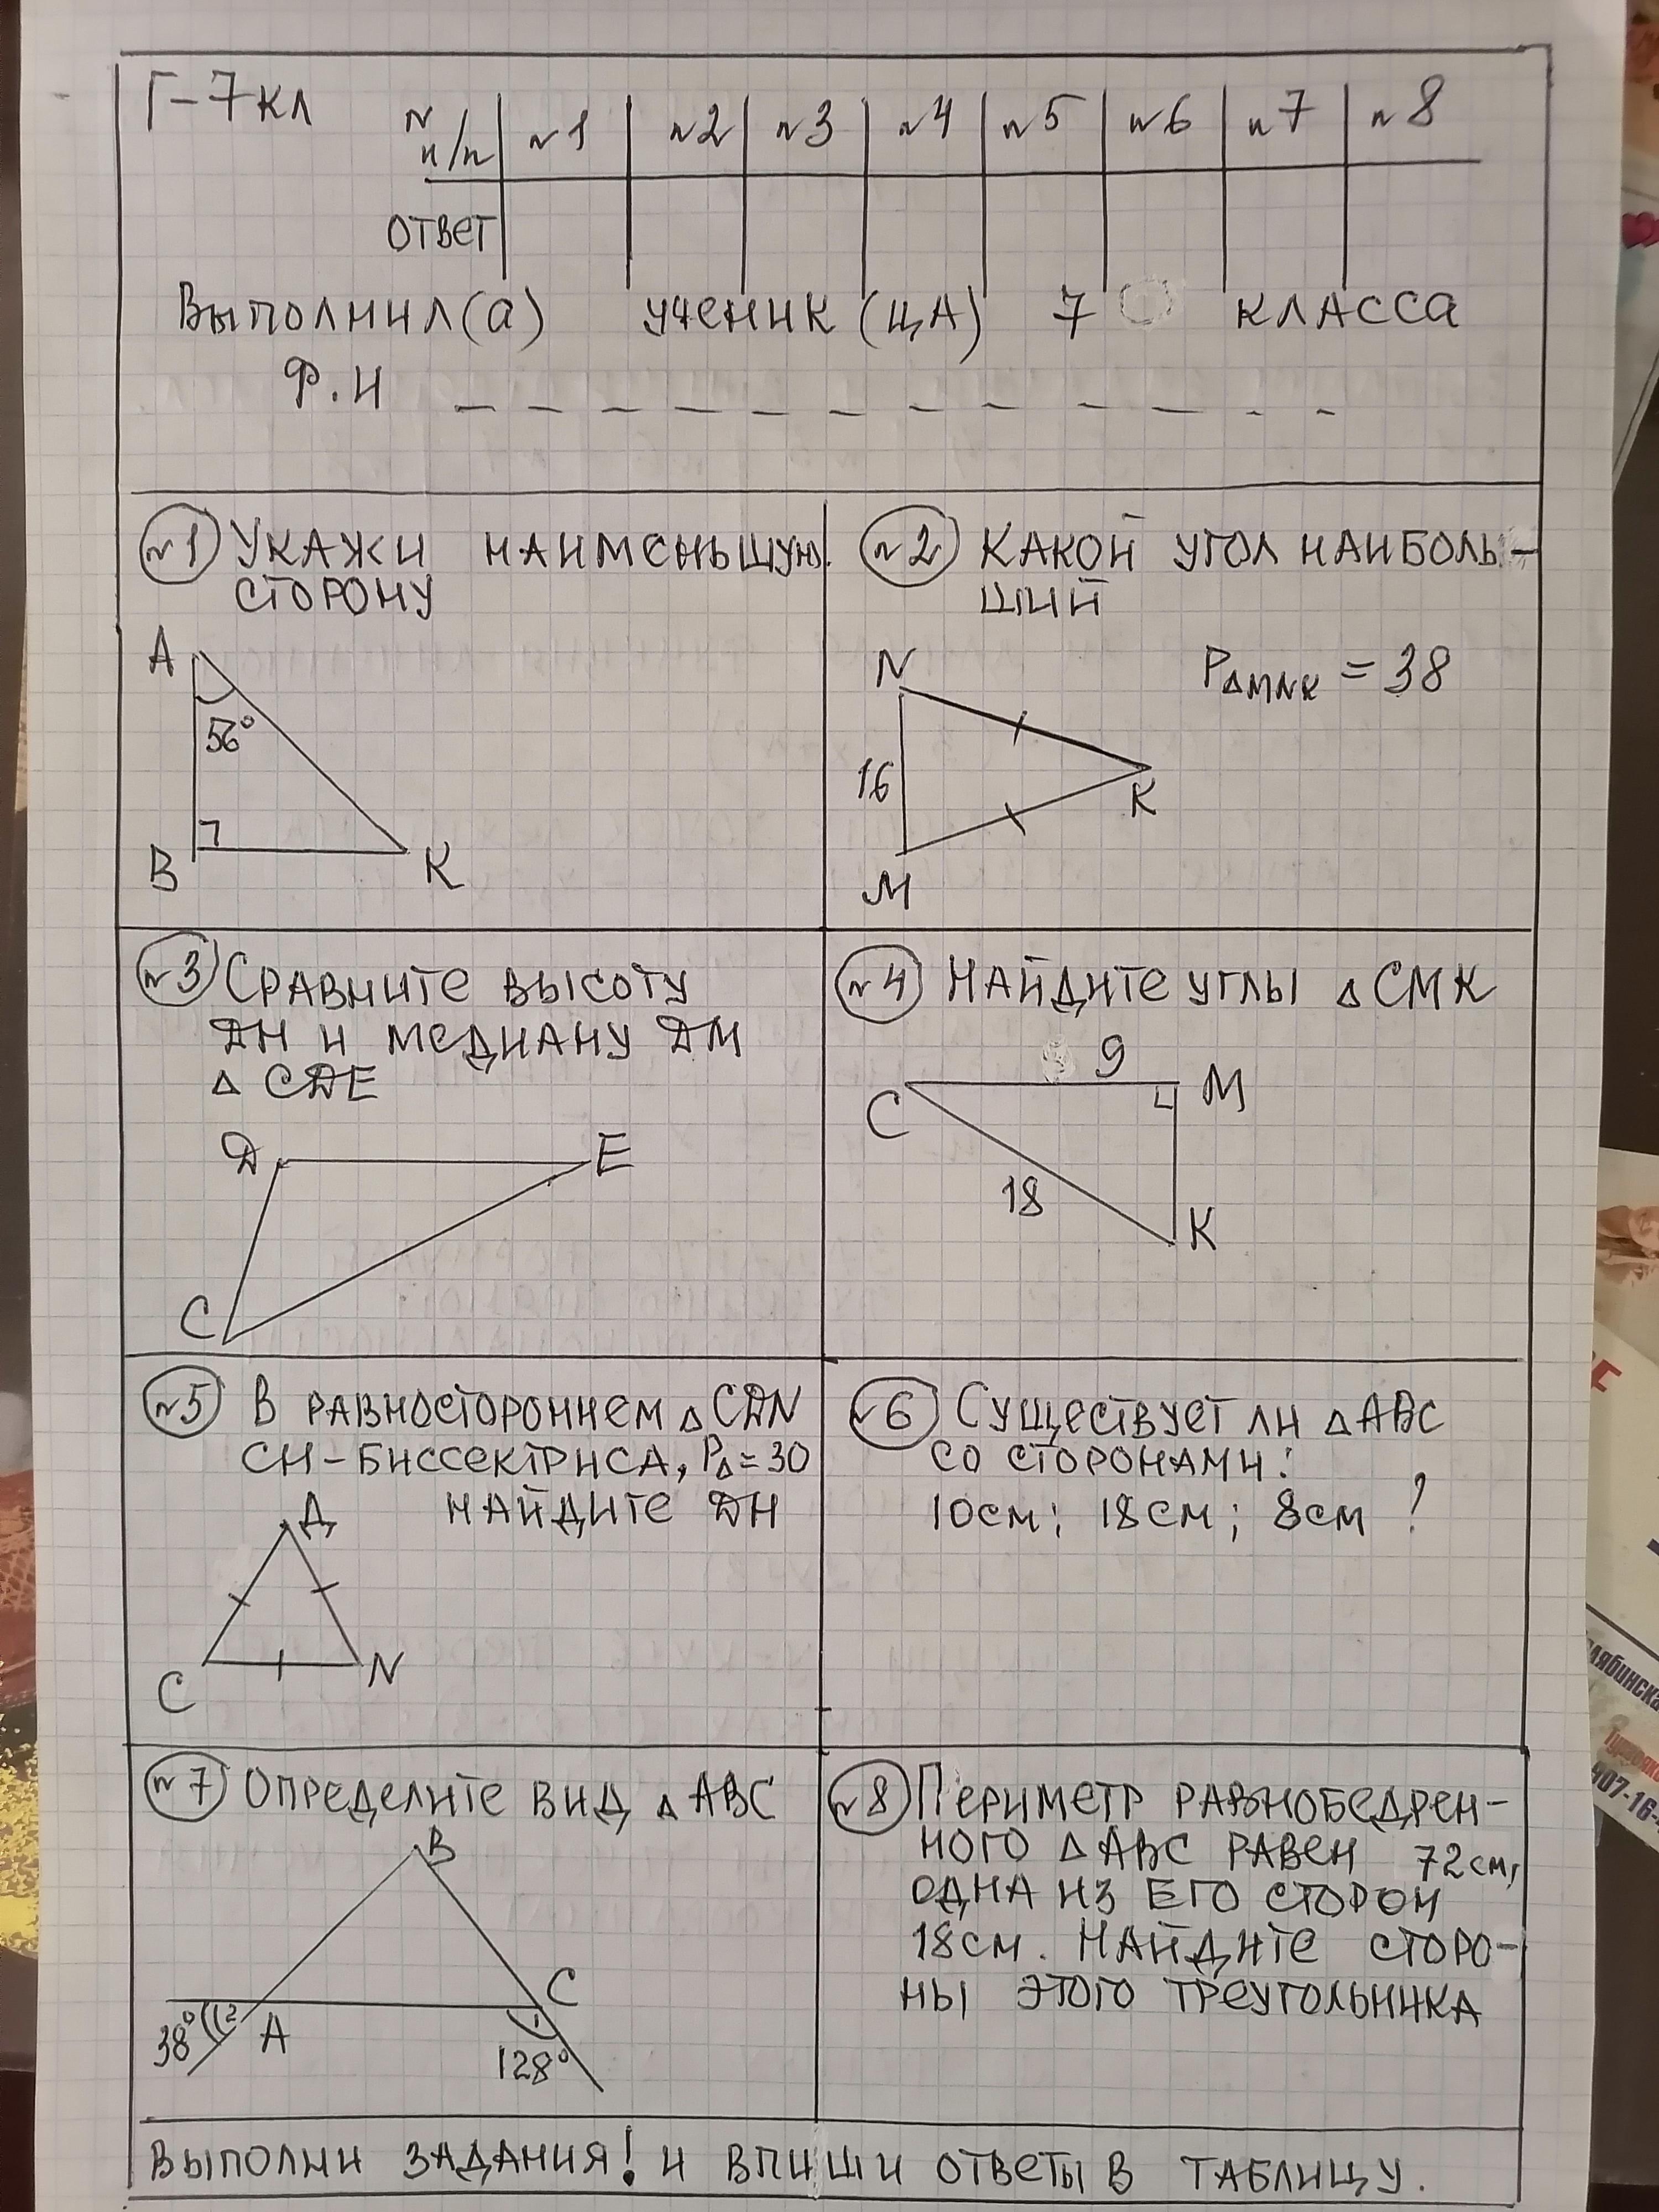 Г-7 кл
N п/п №1 №2 №3 №4 №5 №6 №7 №8
ответ
Выполнил(а) ученик (ца) 7 класса
Ф.И _ _ _ _ _ _ _ _ _ _ _ _
№1 Укажи наименьшую
сторону
A
56°
B
K
№2 Какой угол наиболь-
ший
P△MNK = 38
N
16
K
M
№3 Сравните высоту
DH и медиану DM
△ CDE
D
E
C
№4 Найдите углы △ CMK
9
C
M
18
K
№5 В равностороннем △ CDN
CH - биссектриса, P△ = 30
найдите DH
Д
C
N
№6 Существует ли △ ABC
со сторонами:
10см; 18см; 8см ?
№7 Определите вид △ ABC
B
C
38° 2
A
1
128°
№8 Периметр равнобедрен-
ного △ ABC равен 72 см,
одна из его сторон
18см. Найдите сторо-
ны этого треугольника
Выполни задания! и впиши ответы в таблицу.
ЛЯБИНСКА
407-16-